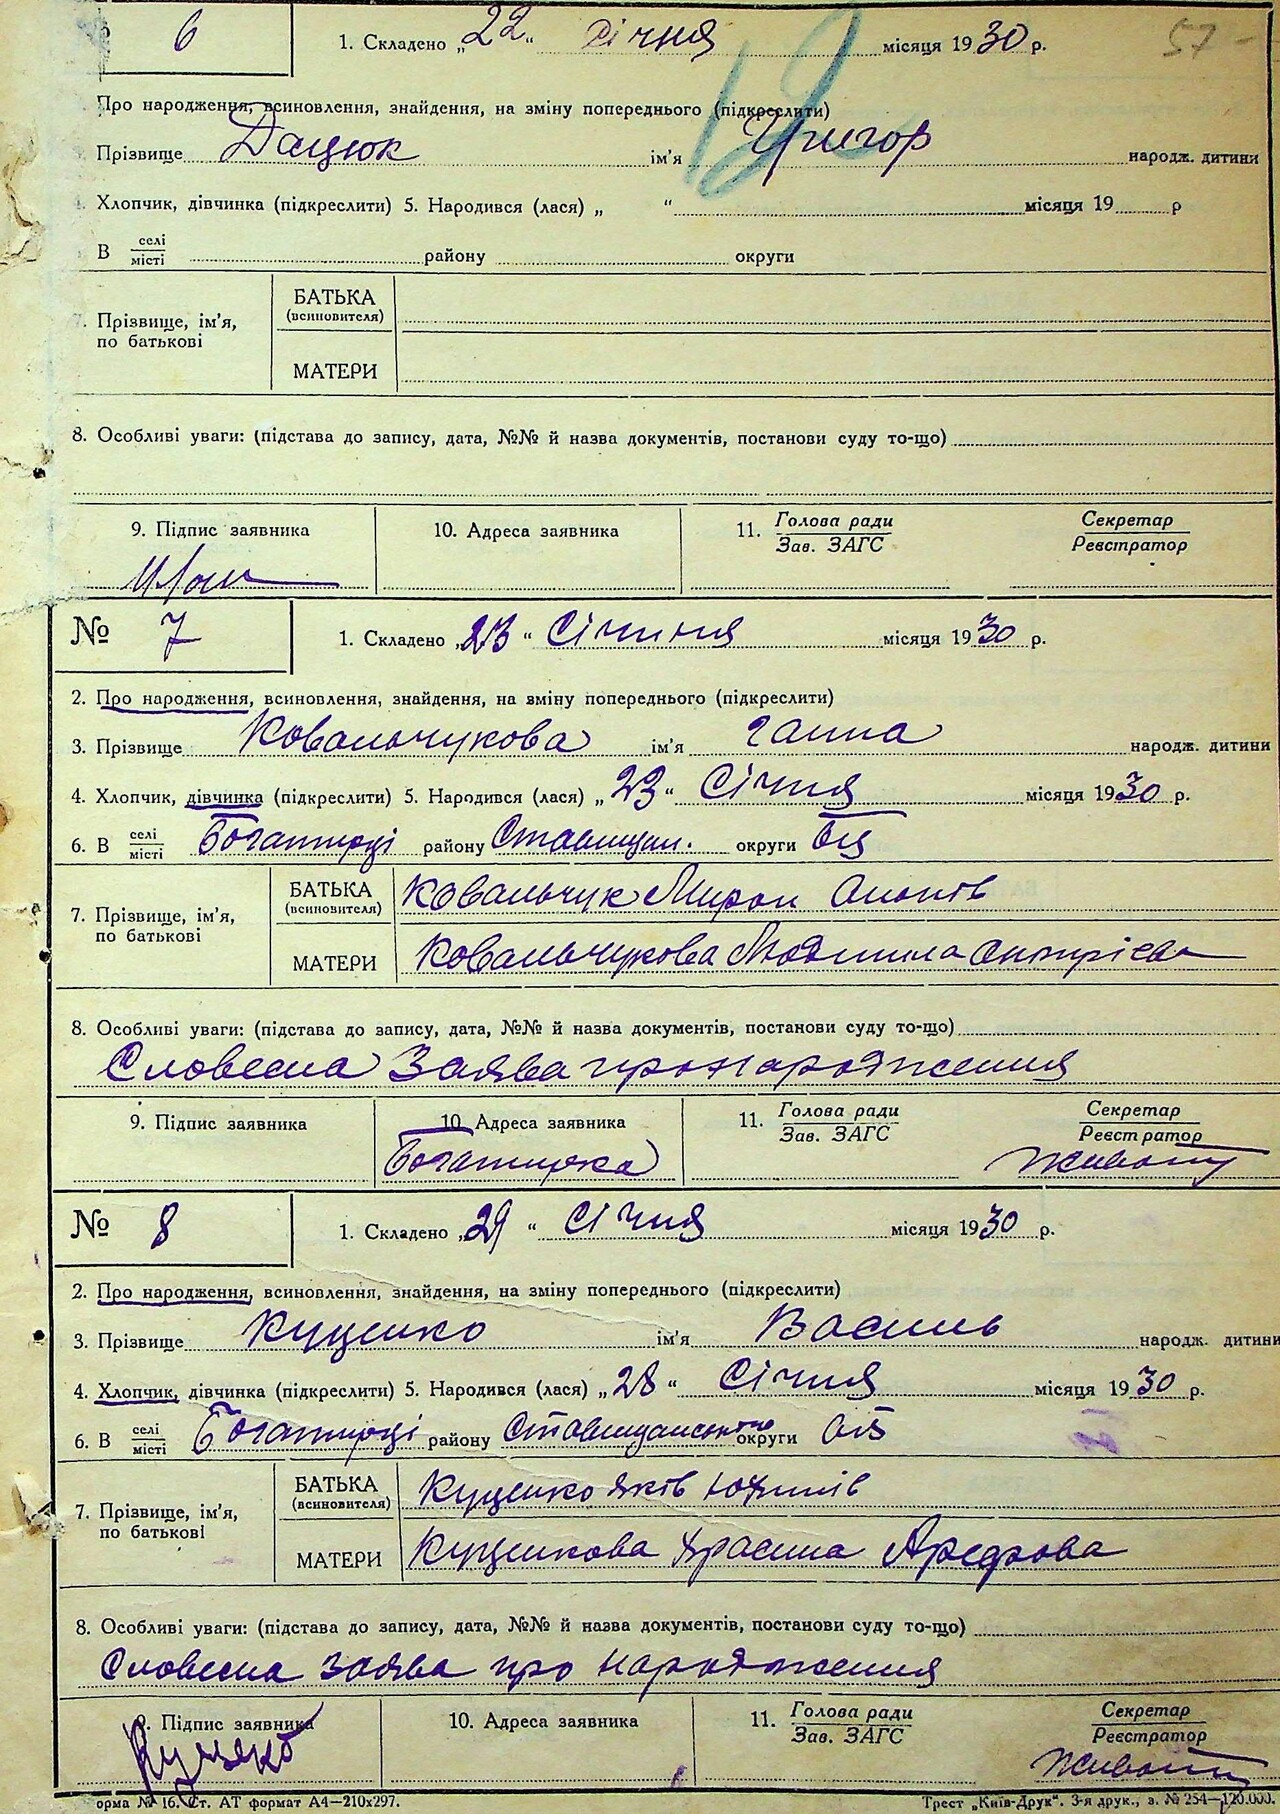 6 1. Складено „22“ січня місяця 1930 р. 57
Про народження, всиновлення, знайдення, на зміну попереднього (підкреслити)
12
Прізвище Дацюк ім'я Григор народж. дитини
4. Хлопчик, дівчинка (підкреслити) 5. Народився (лася) „ “ місяця 19 р
В селі/місті району округи
7. Прізвище, ім'я, по батькові
БАТЬКА (всиновителя)
МАТЕРИ
8. Особливі уваги: (підстава до запису, дата, №№ й назва документів, постанови суду то-що)
9. Підпис заявника 10. Адреса заявника 11. Голова ради/Зав. ЗАГС Секретар/Реєстратор
№ 7 1. Складено „23“ Січння місяця 1930 р.
2. Про народження, всиновлення, знайдення, на зміну попереднього (підкреслити)
3. Прізвище Ковальчукова ім'я Ганна народж. дитини
4. Хлопчик, дівчинка (підкреслити) 5. Народився (лася) „23“ Січня місяця 1930 р.
6. В селі/місті Богатирці району Ставищан. округи БЦ
7. Прізвище, ім'я, по батькові
БАТЬКА (всиновителя) Ковальчук Мирон
МАТЕРИ Ковальчукова Людмила
8. Особливі уваги: (підстава до запису, дата, №№ й назва документів, постанови суду то-що)
Словесна Заява про народження
9. Підпис заявника 10 Адреса заявника 11. Голова ради/Зав. ЗАГС Секретар/Реєстратор
Богатирка
№ 8 1. Складено „29“ Січня місяця 1930 р.
2. Про народження, всиновлення, знайдення, на зміну попереднього (підкреслити)
3. Прізвище Куценко ім'я Василь народж. дитини
4. Хлопчик, дівчинка (підкреслити) 5. Народився (лася) „28“ Січня місяця 1930 р.
6. В селі/місті Богатирці району Ставищанського округи БЦ
7. Прізвище, ім'я, по батькові
БАТЬКА (всиновителя) Куценко Яків Юхимів
МАТЕРИ Куценкова
8. Особливі уваги: (підстава до запису, дата, №№ й назва документів, постанови суду то-що)
Словесна заява про народження
9. Підпис заявника 10. Адреса заявника 11. Голова ради/Зав. ЗАГС Секретар/Реєстратор
орма № 16. Ст. АТ формат А4—210х297. Трест „Київ-Друк“. 3-я друк., з. № 254—120.000.